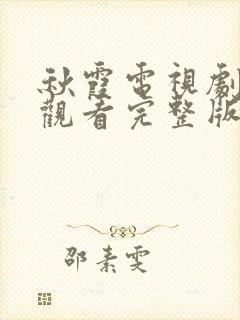 秋霞電視劇
觀看完整版
邵素雯